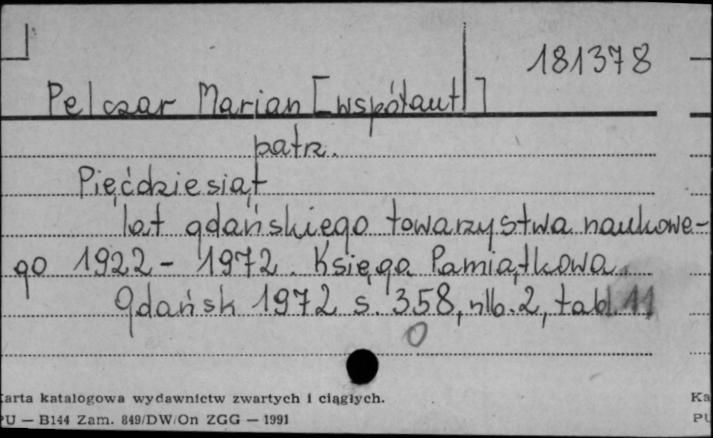 181378
Pelczar Marian [współaut]
patrz.
Pięćdziesiąt
lat gdańskiego towarzystwa naukowe-
go 1922 - 1972. Księga Pamiątkowa.
Gdańsk 1972 s. 358, nlb. 2, tabl. 11
0
Karta katalogowa wydawnictw zwartych i ciągłych.
PU — B144 Zam. 849/DW/On ZGG — 1991
Ka
PU